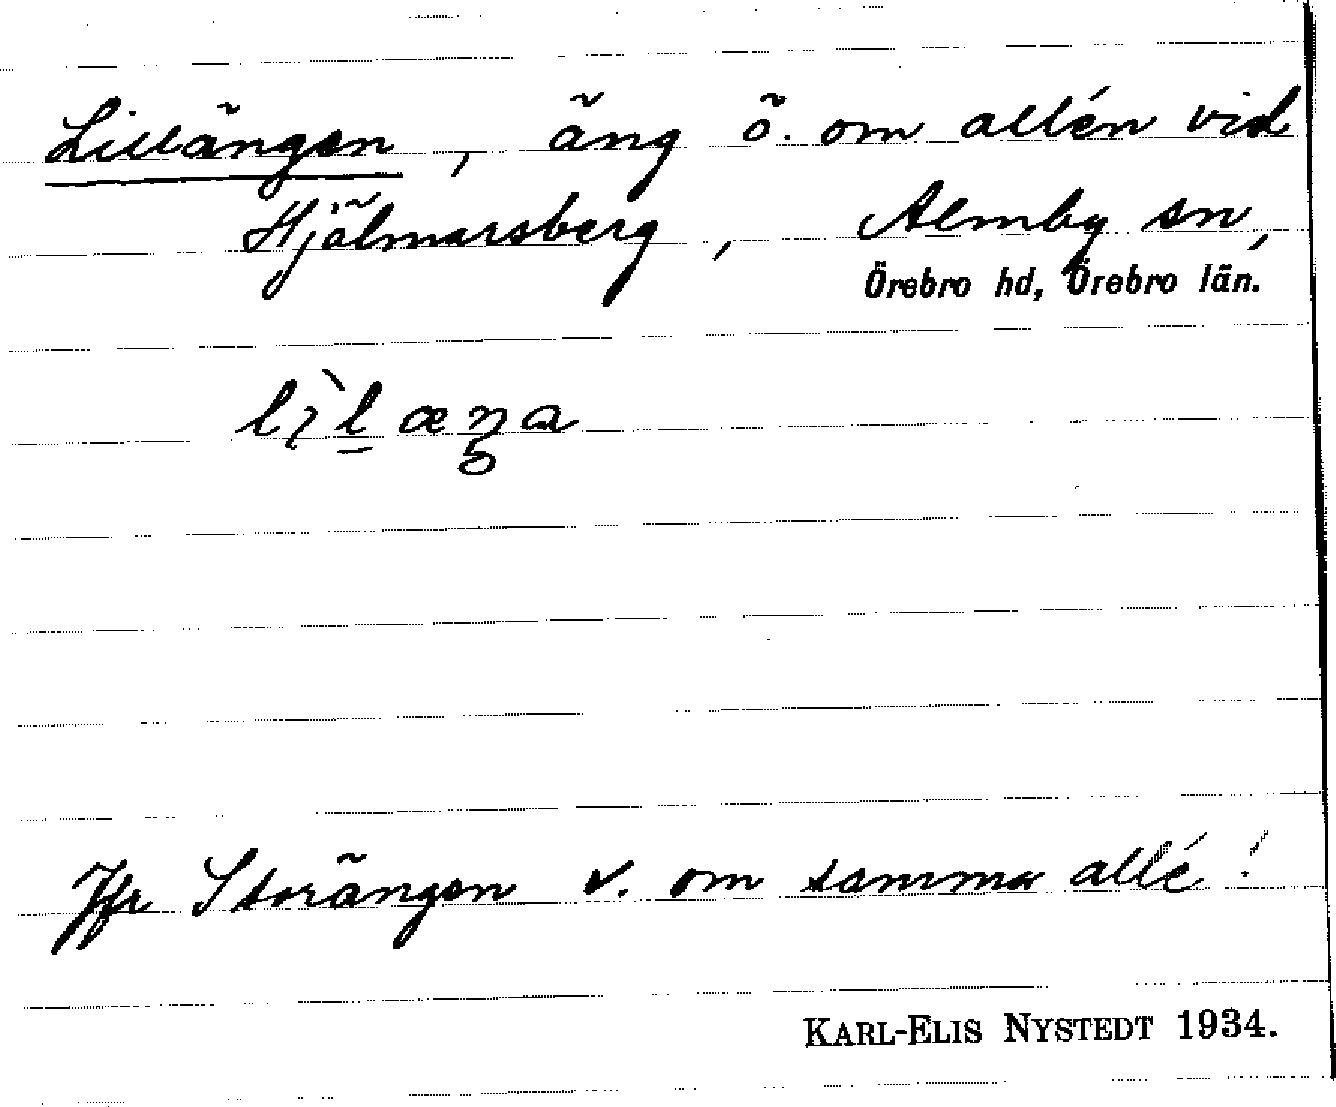 Lillängen, äng ö. om allén vid
Hjälmarsberg, Almby sn,
Örebro hd, Örebro län.
Jfr Storängen v. om samma allé!
KARL-ELIS NYSTEDT 1934.